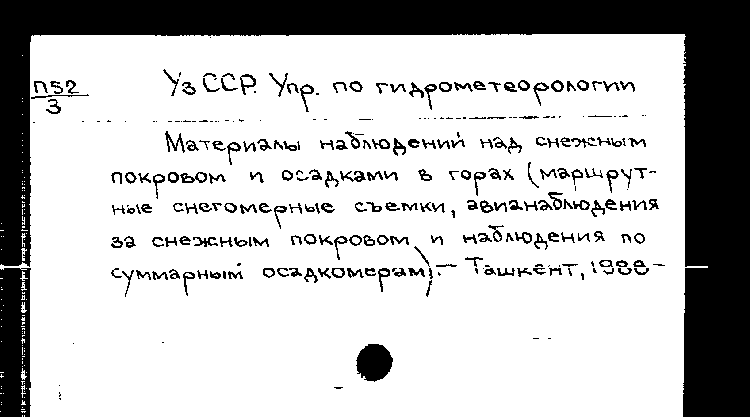 П52
3
УзССР. Упр. по гидрометеорологии
Материалы наблюдений над снежным
покровом и осадками в горах (маршрут-
ные снегомерные съемки, авианаблюдения
за снежным покровом и наблюдения по
суммарным осадкомерам).- Ташкент, 1988-